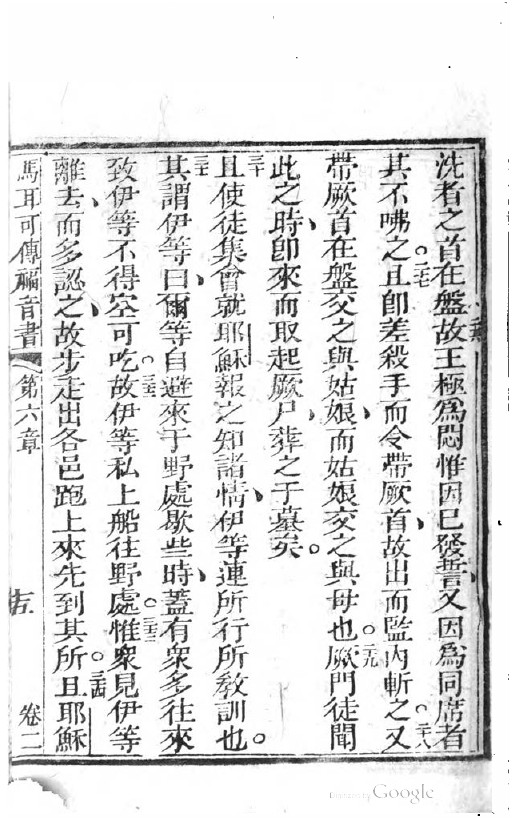 洗者之首在盤故王極為悶惟因已發誓又因為同席者
其不咈之。二七且即差殺手而令帶厥首故出而監內斬之又。二八
帶厥首在盤交之與姑娘而姑娘交之與母也。二九厥門徒聞
此之時即來而取起厥尸葬之于墓矣。
三十且使徒集會就耶穌報之知諸情伊等連所行所教訓也。
三一其謂伊等曰爾等自避來于野處歇些時蓋有眾多往來
致伊等不得空可吃。三二故伊等私上船往野處。三三惟眾見伊等
離去而多認之故步走出各邑跑上來先到其所。三四且耶穌
馬耳可傳福音書 第六章 十五 卷二
Digitized by Google